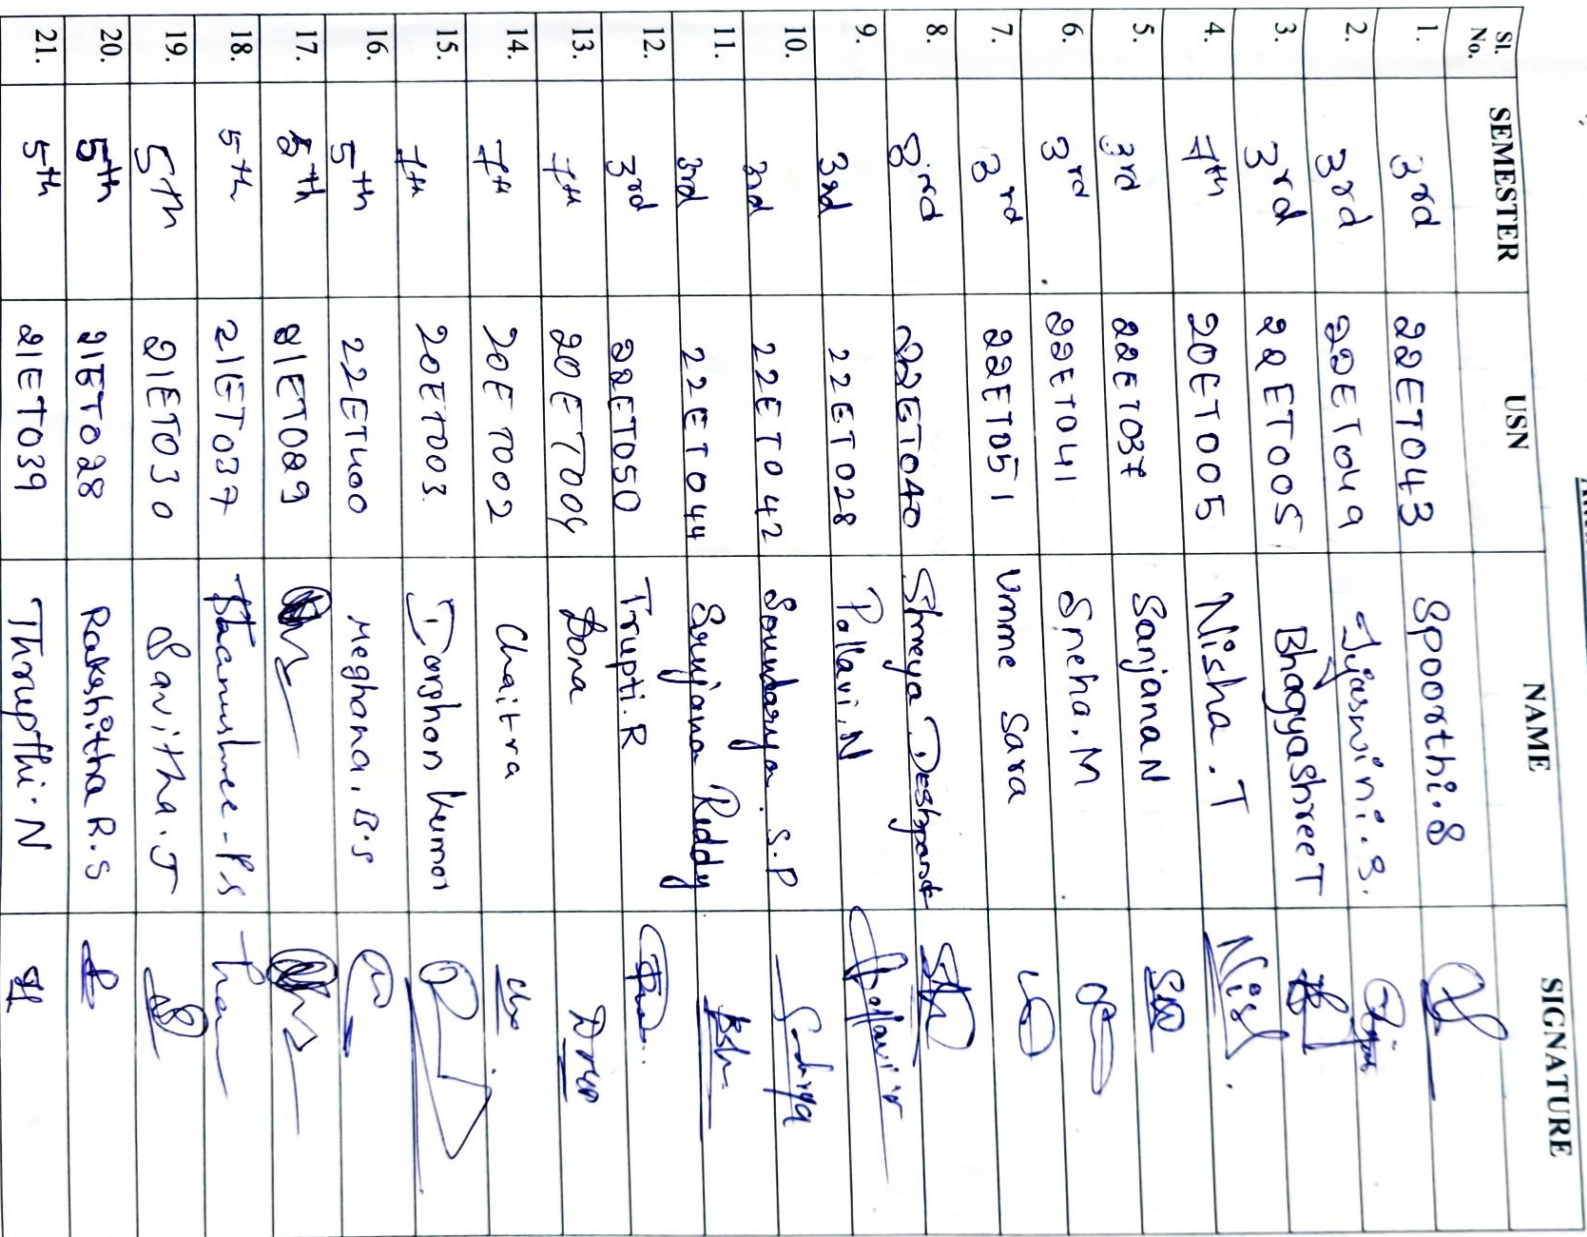 Sl. No. SEMESTER USN NAME SIGNATURE
1. 3rd 22ET043 Spoorthi.S
2. 3rd 22ET049 Tejaswini.S.
3. 3rd 22ET005 Bhagyashree T
4. 7th 20ET005 Nisha.T Nish
5. 3rd 22ET037 Sanjana N
6. 3rd 22ET041 Sneha.M
7. 3rd 22ET051 Umme Sara
8. 3rd 22ET040 Shreya Deshpande
9. 3rd 22ET028 Pallavi.N Pallavi
10. 3rd 22ET042 Soundarya.S.P
11. 3rd 22ET044 Srujana Reddy
12. 3rd 22ET050 Trupti.R
13. 7th 20ET004 Dona
14. 7th 20ET002 Chaitra
15. 7th 20ET003 Darshan Kumar
16. 5th 22ET400 Meghana.B.S
17. 5th 21ET029
18. 5th 21ET037
19. 5th 21ET030 Savitha.J
20. 5th 21ET028 Rakshitha R.S
21. 5th 21ET039 Thrupthi.N